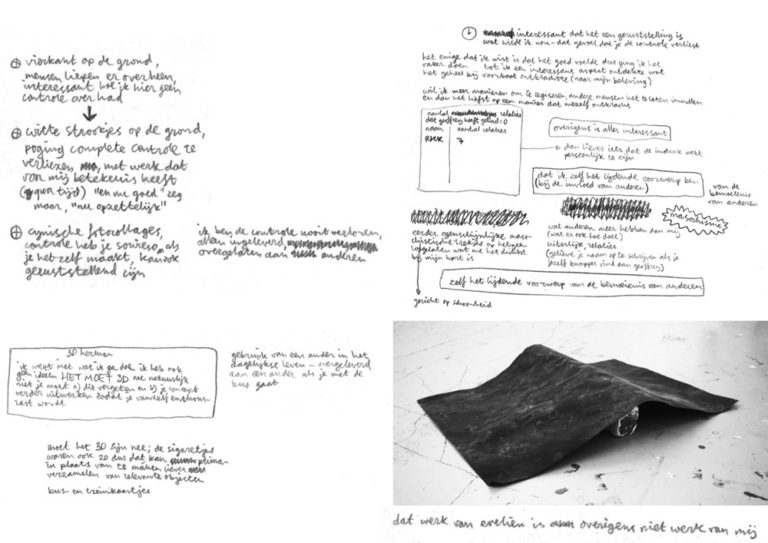 vierkant op de grond,
mensen liepen er overheen,
interessant hoe ik hier geen
controle over had
witte strookjes op de grond,
poging complete controle te
verliezen, met werk dat
voor mij betekenis heeft
(qua tijd) "en nu goed" zeg
maar, "nu opzettelijk"
cynische fotocollages,
controle heb je sowieso als
je het zelf maakt, kan ook
geruststellend zijn
ik ben de controle nooit verloren,
alleen ingeleverd,
overgelaten aan anderen
interessant dat het een geruststelling is
wat wilde ik nou - dat gevoel dat je de controle verliest
het enige dat ik wist is dat het goed voelde dus ging ik het
vaker doen tot ik een interessant aspect ontdekte wat
het geheel bij voorbaat ontkrachtte (naar mijn beleving)
wil ik meer manieren om te regisseren, andere mensen het te laten invullen
en dan het liefst op een manier dat mezelf ontkracht
aantal relaties
dat geoffrey heeft gehad: 0
naam aantal relaties
RICK 7
overigens is alles interessant
dan liever iets dat de indruk wekt
persoonlijk te zijn
dat ik zelf het lijdende voorwerp ben
(bij de invloed van anderen)
van de
bemoeienis
van anderen
masochisme
eerder ogenschijnlijke maso-
chistische
loslaten wat me het dichtst
bij mijn hart is
wat anderen meer hebben dan mij
(wat er ook toe doet)
uiterlijk, relaties
(gelieve je naam op te schrijven als je
jezelf knapper vind dan geoffrey)
zelf het lijdende voorwerp van de bemoeienis van anderen
gericht op schoonheid
3D herman
ik weet niet wat ik ga doen ik heb ook
geen ideeën HET MOET 3D nee natuurlijk
niet je moet a) dit vergeten en b) je concept
verder uitwerken zodat je vanzelf enthous-
iast wordt
gebruik van een ander in het
dagelijkse leven - overgeleverd
aan een ander als je met de
bus gaat
moet het 3D zijn nee; de sigaretjes
waren ook 2D dus dat kan prima
in plaats van te maken liever
verzamelen van relevante objecten
bus- en treinkaartjes
dat werk van evelien is overigens niet werk van mij